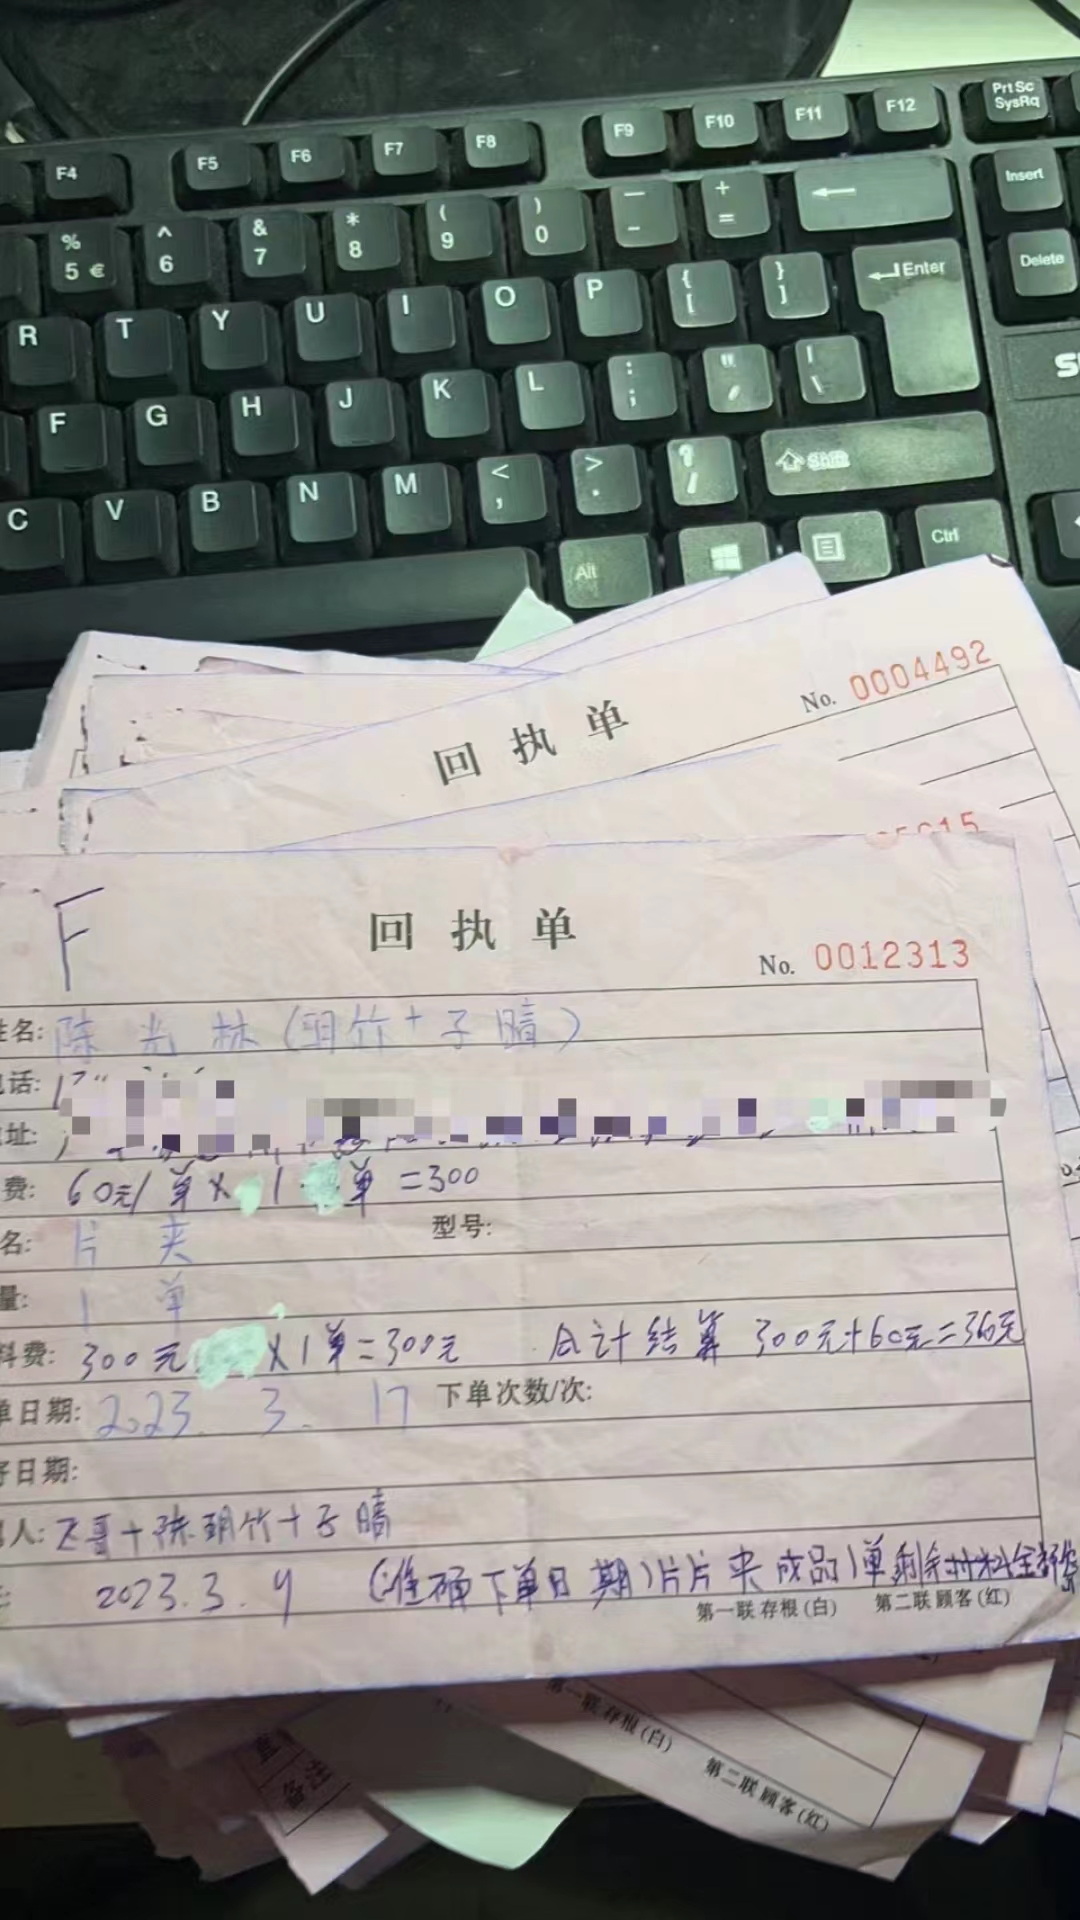 Prt Sc
SysRq
F4 F5 F6 F7 F8 F9 F10 F11 F12
% 5 € ^ 6 & 7 * 8 ( 9 ) 0 — - + = ← Insert
R T Y U I O P { [ } ] Enter Delete
F G H J K L : ; " , | \
C V B N M < , > . ? / Shift
Alt Ctrl
回执单
No. 0004492
15
F
回执单
No. 0012313
姓名: 陈光林(玥竹+子晴)
话:
址:
费: 60元/单× 1 单=300
名: 片夹 型号:
量: 1单
料费: 300元 ×1单=300元 合计结算 300元+60元=36元
单日期: 2023. 3. 17 下单次数/次:
日期:
人: 飞哥+陈玥竹+子晴
2023.3.9 (准确下单日期)片片夹成品1单剩余材料全部
第一联存根(白) 第二联顾客(红)
第一联存根(白)
第二联顾客(红)